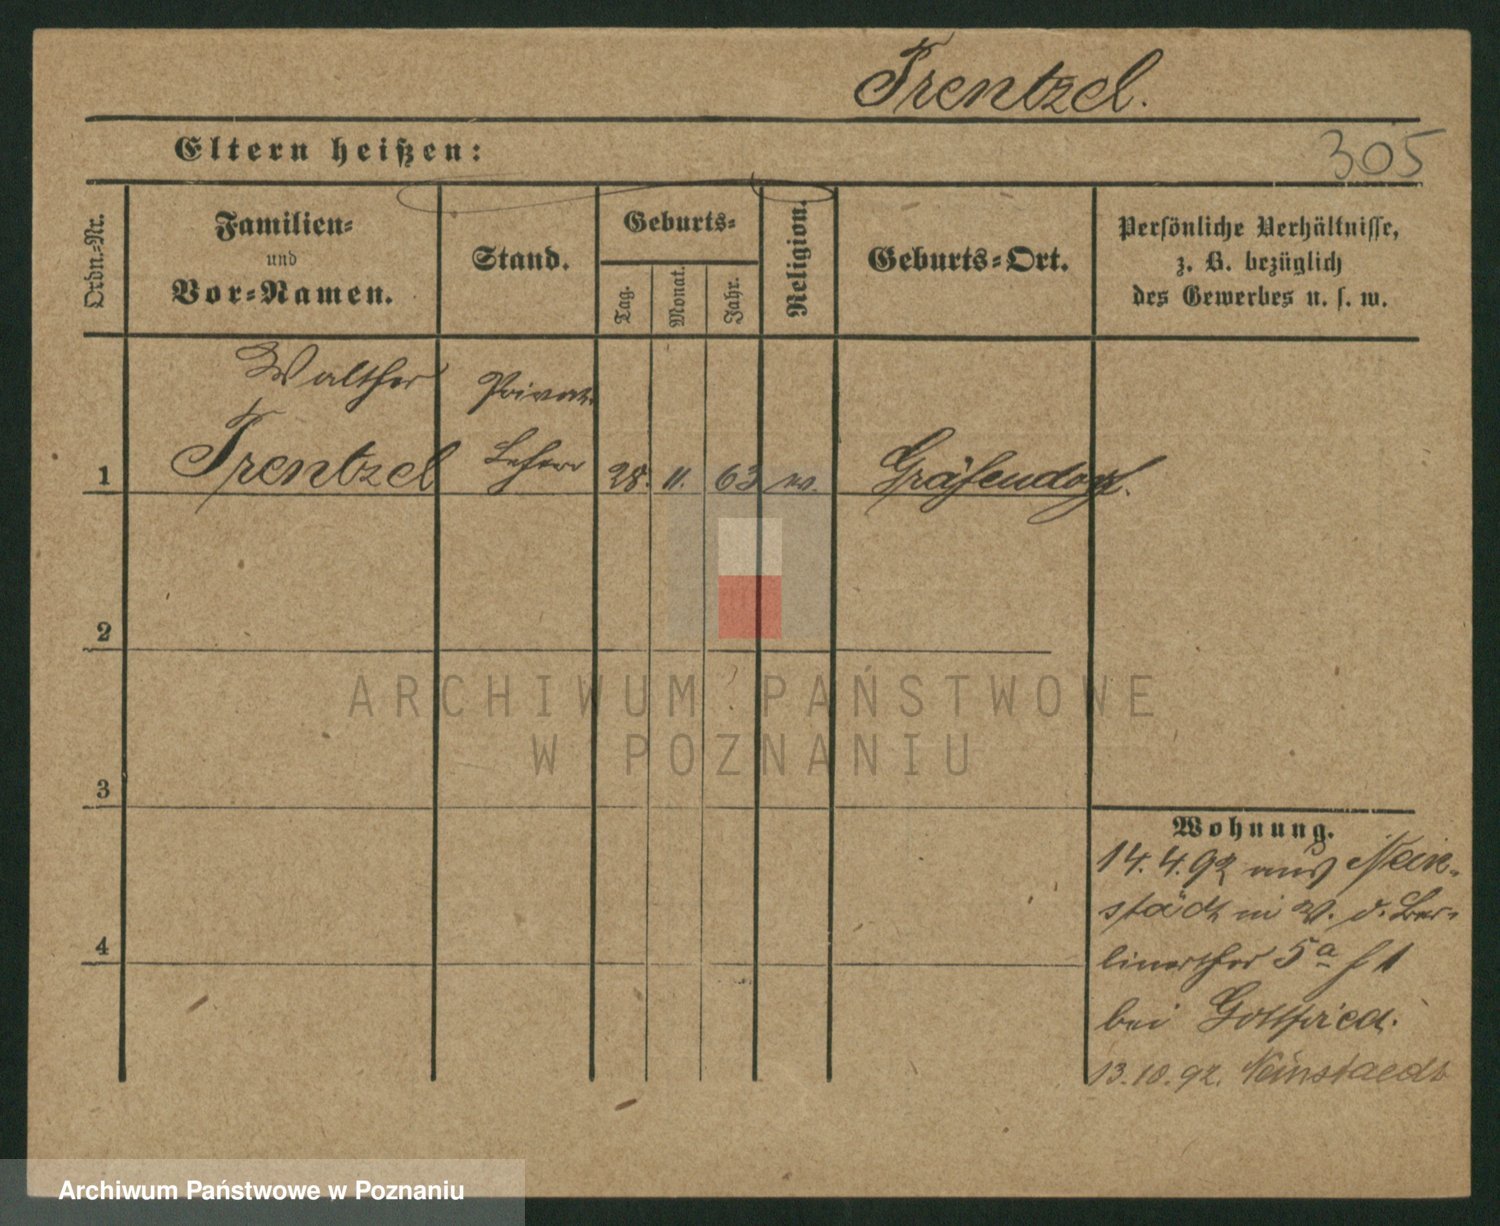 Trentzel.
Eltern heißen:
305
Ordn.-Nr.
Familien-
und
Vor-Namen.
Stand.
Geburts-
Tag.
Monat.
Jahr.
Religion.
Geburts-Ort.
Persönliche Verhältnisse,
z. B. bezüglich
des Gewerbes u. s. w.
Walther Privat-
1 Trentzel Lehrer 28. 11. 63 Gräfendorf.
2
ARCHIWUM PAŃSTWOWE
W POZNANIU
3
Wohnung.
14.4.92 aus Nein-
städt in W. v. Ber-
linerthor 5a
4
bei Gottfried.
13.10.92. Neinstaedt
Archiwum Państwowe w Poznaniu